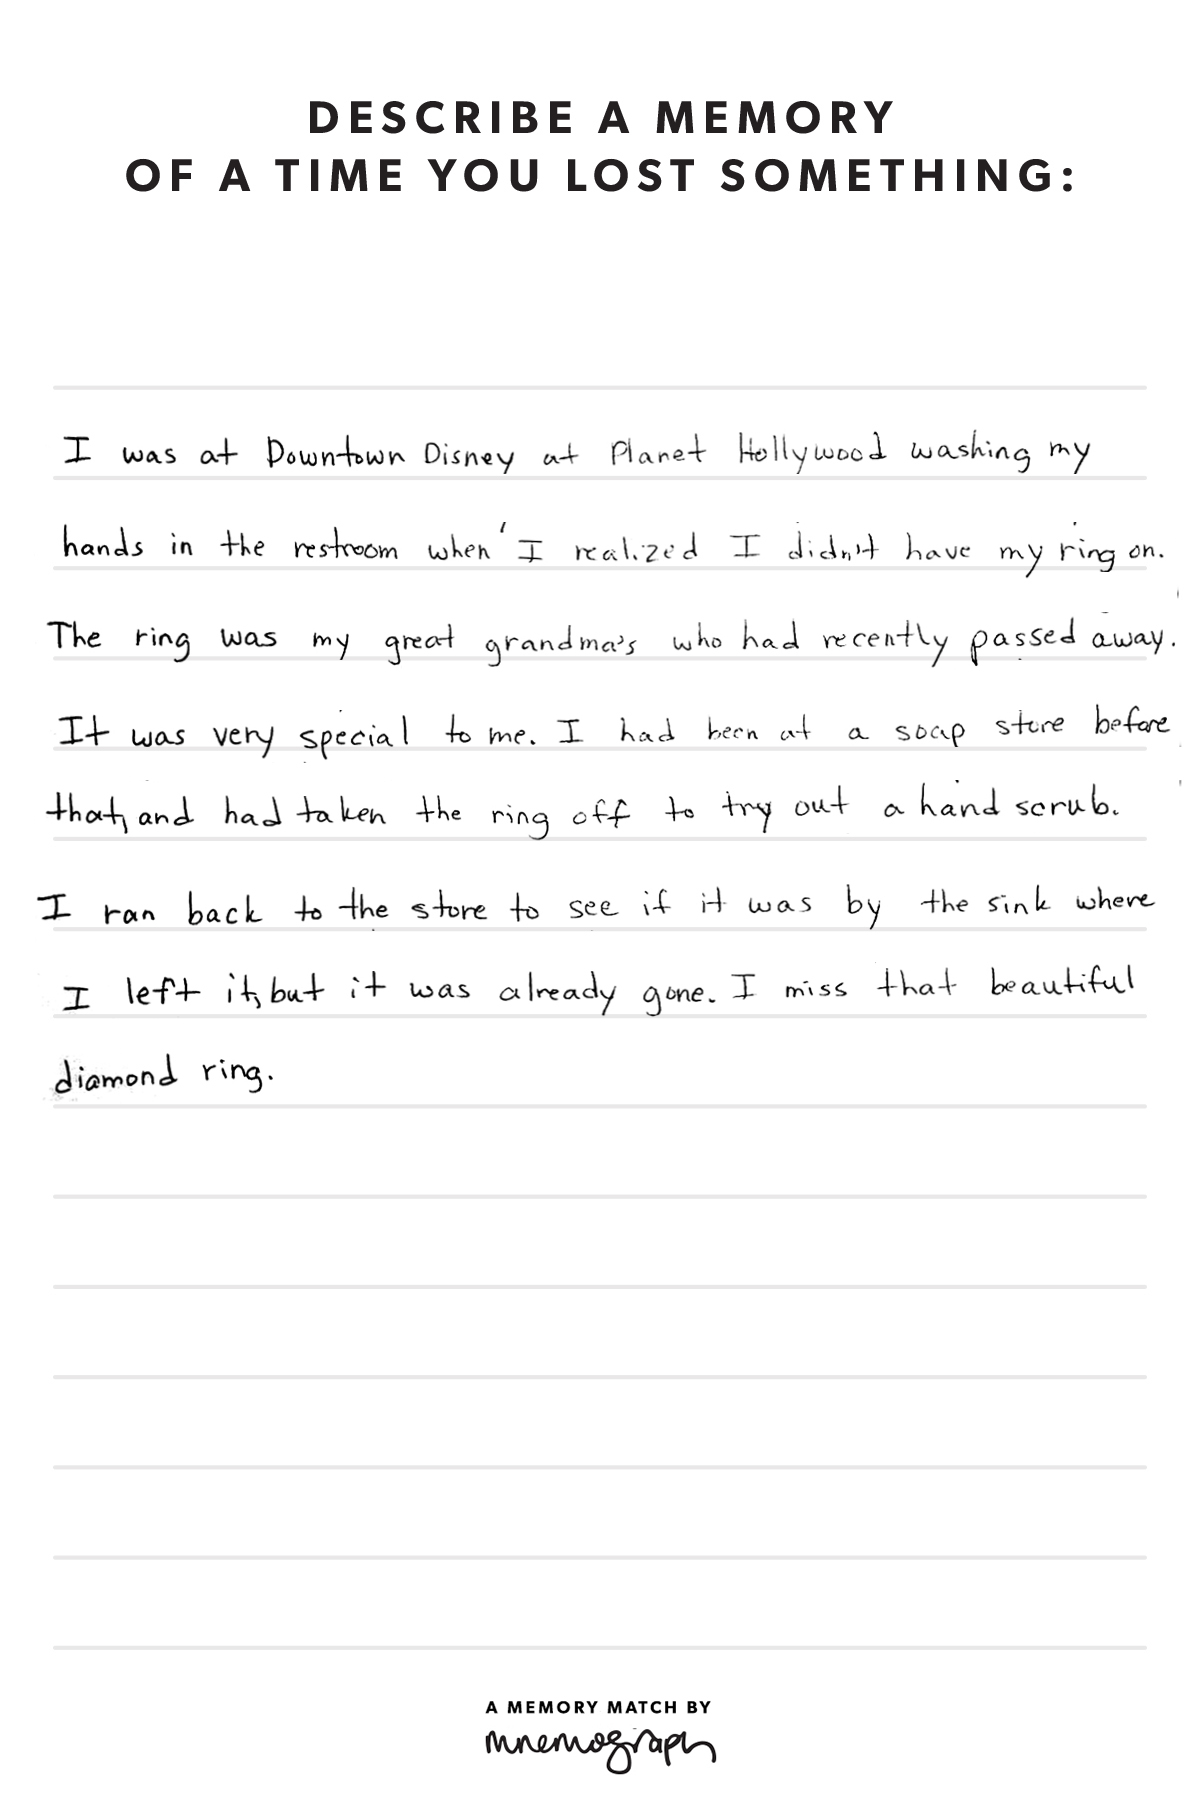 DESCRIBE A MEMORY
OF A TIME YOU LOST SOMETHING:
I was at Downtown Disney at Planet Hollywood washing my
hands in the restroom when I realized I didn't have my ring on.
The ring was my great grandma's who had recently passed away.
It was very special to me. I had been at a soap store before
that, and had taken the ring off to try out a hand scrub.
I ran back to the store to see if it was by the sink where
I left it, but it was already gone. I miss that beautiful
diamond ring.
A MEMORY MATCH BY
mnemograph